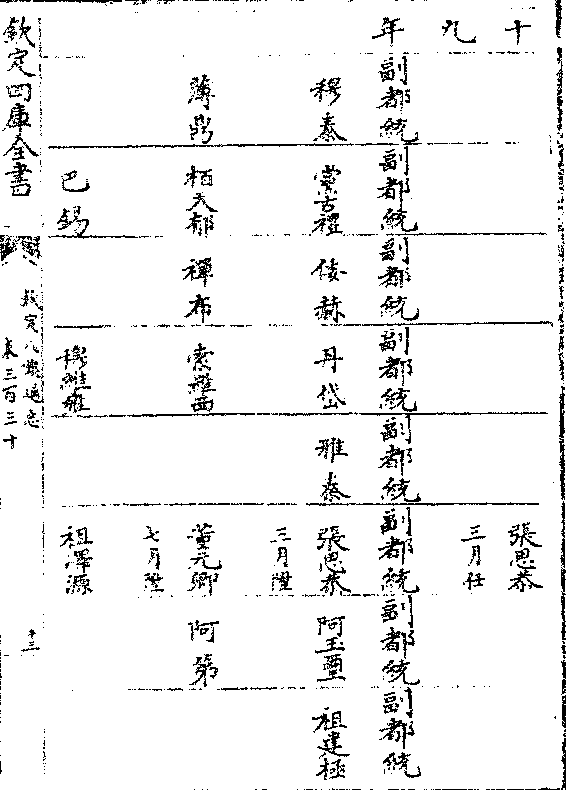 十九年
張思恭
三月任
副都統 副都統 副都統 副都統 副都統 副都統 副都統 副都統
穆泰 蒙古禮 倭赫 丹岱 雅泰 張思恭 阿玉璽 祖建極
三月陞
薄鼎 栢天郁 禪布 索羅西 董元卿 阿第
七月陞
巴錫 穆維雍 祖澤源
欽定四庫全書
欽定八旗通志
卷三百三十
十三